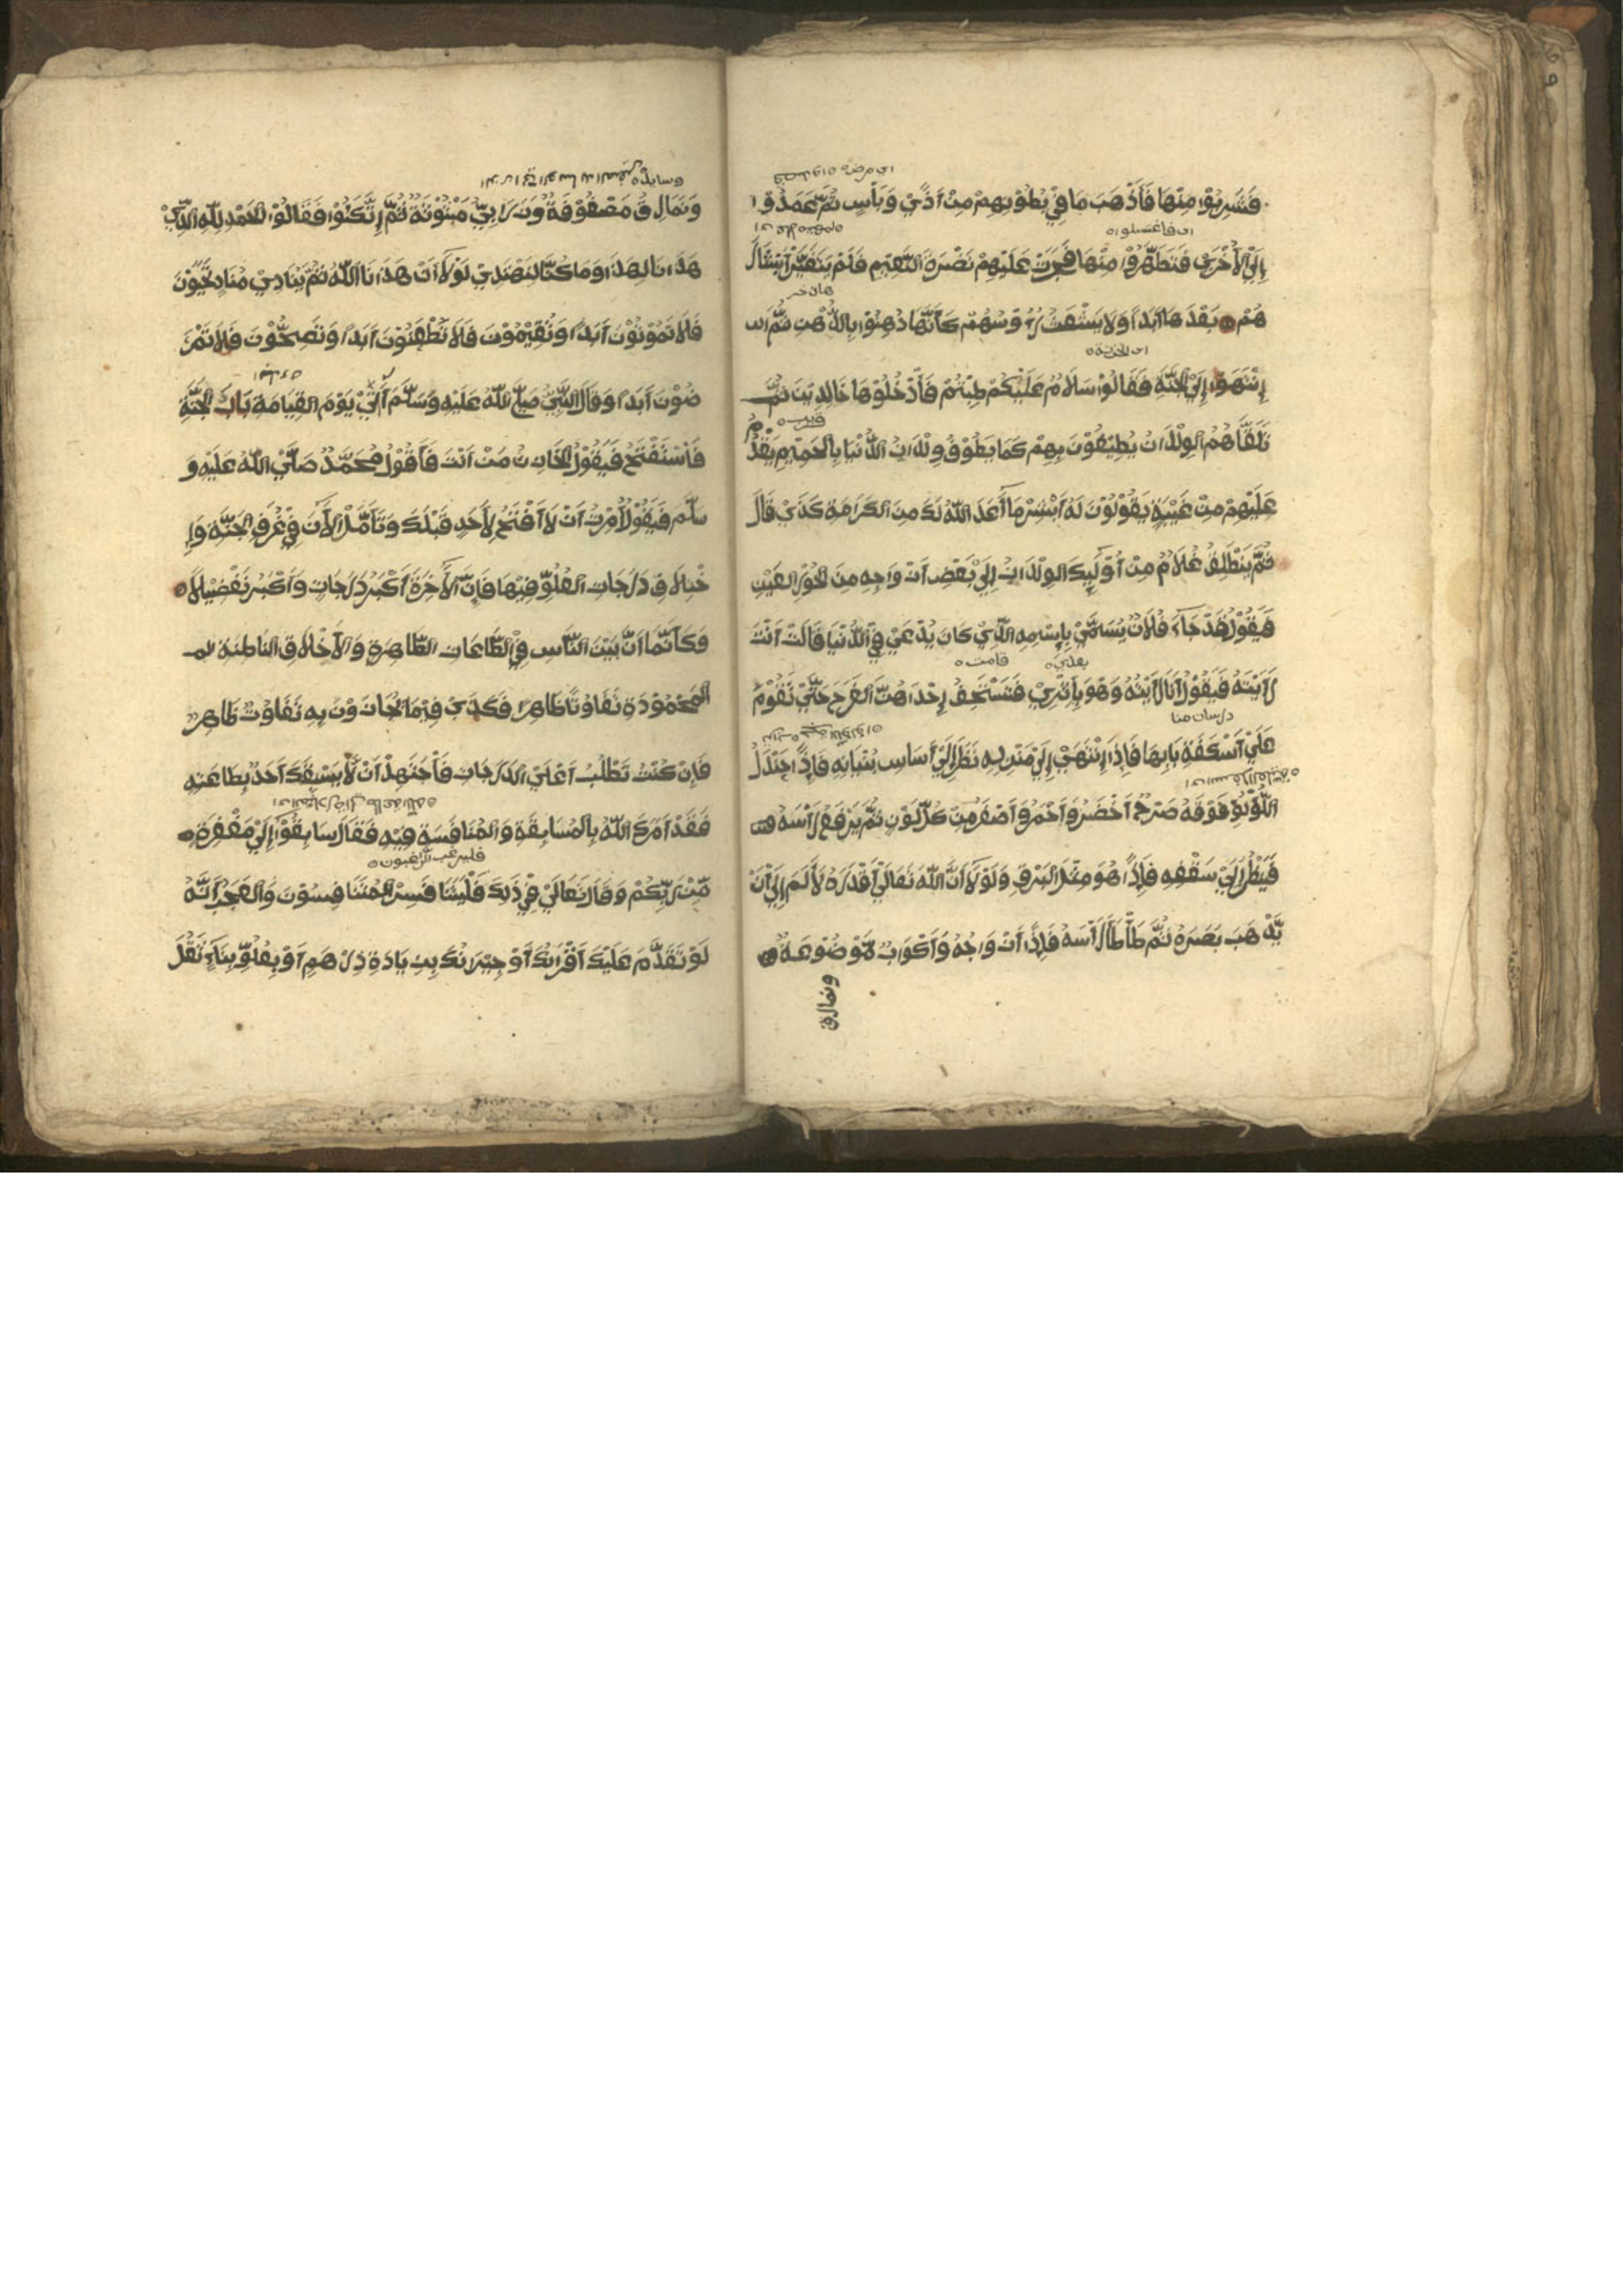 فَشَرِبُوْا مِنْهَا فَأَذْهَبَ مَا فِيْ بُطُوْنِهِمْ مِنْ اَذًيْ وَبَأْسٍ ثُمَّ عَمَدُوْا
اي فاغتسلوا
إِلَيْ الأُخْرَيٰ فَتَطَهَّرُوْا مِنْهَا فَجَرَتْ عَلَيْهِمْ نَضْرَةُ النَّعِيْمِ فَلَمْ يَتَغَيَّرْ اَبْشَالَ
هُمْ بَعْدَهَا اَبَدًا وَلَا يَشْعَثُ رُءُوْسُهُمْ كَأَنَّهَا دُهِنُوْا بِالدُّهْنِ ثُمَّ اس
اي الخزنة
إِنْتَهَوْا إِلَيْ الجَنَّةِ فَقَالُوْا سَلَامٌ عَلَيْكُمْ طِبْتُمْ فَأَدْخُلُوْهَا خَالِدِيْنَ ثُمَّ
تَلَقَّاهُمُ الوِلْدَانُ يُطِيْفُوْنَ بِهِمْ كَمَا يَطُوْفُ وِلْدَانُ الدُّنْيَا بِالحَمِيْمِ يَقْدُمُ
عَلَيْهِمْ مِنْ غَيْبَةٍ يَقُوْلُوْنَ لَهُ اَبْشِرْ مَا أَعَدَ اللّٰهُ لَكَ مِنَ الكَرَامَةِ كَذَيْ قَالَ
ثُمَّ يَنْطَلِقُ غُلَامٌ مِنْ اُوْلٰٓئِكَ الوِلْدَانِ إِلَيْ بَعْضِ اَزْوَاجِهِ مِنَ الحُوْرِ العَيْنِ
فَيَقُوْلُ قَدْ جَاءَ فُلَانٌ يُسَمَّيْ بِإِسْمِهِ الَّذِيْ كَانَ يُدْعَيْ فِيْ الدُّنْيَا قَالَتْ اَنْتَ
بعدي قامت
رَاَيْتَهُ فَيَقُوْلُ اَنَا رَاَيْتُهُ وَهُوَ بِأَثَرِيْ فَتَسْتَخِفُّ إِحْدَاهُنَّ الفَرَحَ حَتَّيْ تَقُوْمَ
عَلَيْ اَسْكَفَةِ بَابِهَا فَإِذَا إِنْتَهَيْ إِلَيْ مَنْزِلِهِ نَظَرَ إِلَيْ أَسَاسِ بُنْيَانِهِ فَإِذًا جَنْدَلُ
اللُّؤْلُؤِ فَوْقَهُ صَرْحٌ اَخْضَرُ وَاَحْمَرُ وَاَصْفَرُ مِنْ كُلِّ لَوْنٍ ثُمَّ يَرْفَعُ رَأْسَهُ
فَيَنْظُرُ إِلَيْ سَقْفِهِ فَإِذًا هُوَ مِثْلُ البَرْقِ وَلَوْلَا اَنَّ اللّٰهَ تَعَالَيْ اَقْدَرَهُ لَأَلَمَّ إِلَيْ اَنْ
يَّذْهَبَ بَصَرَهُ ثُمَّ طَأْطَأَ رَأْسَهُ فَإِذًا اَزْوَاجُهُ وَأَكْوَابٌ مَّوْضُوْعَةٌ
ونمارق
وَنَمَارِقُ مَصْفُوْفَةٌ وَزَرَابِيُّ مَبْثُوْثَةٌ ثُمَّ إِتَّكَئُوْا فَقَالُوْا الحَمْدُ لِلّٰهِ الَّذِيْ
هَدَانَا لِهَذَا وَمَا كُنَّا لِنَهْتَدِيْ لَوْلَا اَنْ هَدَانَا اللّٰهُ ثُمَّ يُنَادِيْ مُنَادٍ تَحْيَوْنَ
فَلَا تَمُوْتُوْنَ اَبَدًا وَتُقِيْمُوْنَ فَلَا تَظْعَنُوْنَ اَبَدًا وَتَصِحُّوْنَ فَلَا تَمْرَ
ضُوْنَ اَبَدًا وَقَالَ النَّبِيُّ صَلَّي اللّٰهُ عَلَيْهِ وَسَلَّمَ اٰتِيْ يَوْمَ القِيَامَةِ بَابَ الجَنَّةِ
فَأَسْتَفْتِحُ فَيَقُوْلُ الخَازِنُ مَنْ اَنْتَ فَأَقُوْلُ مُحَمَّدٌ صَلَّيْ اللّٰهُ عَلَيْهِ وَ
سَلَّم فَيَقُوْلُ اُمِرْتُ اَنْ لَا اَفْتَحَ لِأَحَدٍ قَبْلَكَ وَتَأَمَّلْ الأَنَ فِيْ غُرَفِ الجَنَّةِ وَإِ
خْتِلَاقِ دَرَجَاتِ العُلُوِّ فِيْهَا فَإِنَّ الأَخِرَةَ اَكْبَرُ دَرَجَاتٍ وَاَكْبَرُ تَفْضِيْلًا
وَكَأَنَّمَا اَنَّ بَيْنَ النَّاسِ فِيْ الطَّاعَاتِ الظَّاهِرَةِ وَالأَخْلَاقِ البَاطِنَةِ لم
المَحْمُوْدَةِ تَفَاوُتًا ظَاهِرًا فَكَذَيْ فِيْمَا يُجَازَوْنَ بِهِ تَفَاوُتٌ ظَاهِرٌ
فَإِنْ كُنْتَ تَطْلُبُ اَعْلَيْ الدَرَجَاتِ فَأَجْتَهِدْ اَنْ لَّا يَسْبِقَكَ اَحَدٌ بِطَاعَتِهِ
فَقَدْ اَمَرَكَ اللّٰهُ بِالمُسَابِقَةِ وَالمُنَافَسَةِ فِيْهِ فَقَالَ سَابِقُوْا إِلَيْ مَغْفِرَةٍ
فليرغب الراغبون
مِّنْ رَبِّكُمْ وَقَالَ تَعَالَيْ فِيْ ذَلِكَ فَلْيَتَنَا فَسِ المُتَنَا فِسُوْنَ وَالعَجَبُ اَنَّهُ
لَوْ تَقَدَّمَ عَلَيْكَ اَقْرَانُكَ اَوْ جِيْرَانُكَ بِزِيَادَةِ دِرْهَمٍ اَوْ بِعُلُوِّ بِنَاءٍ ثَقُلَ